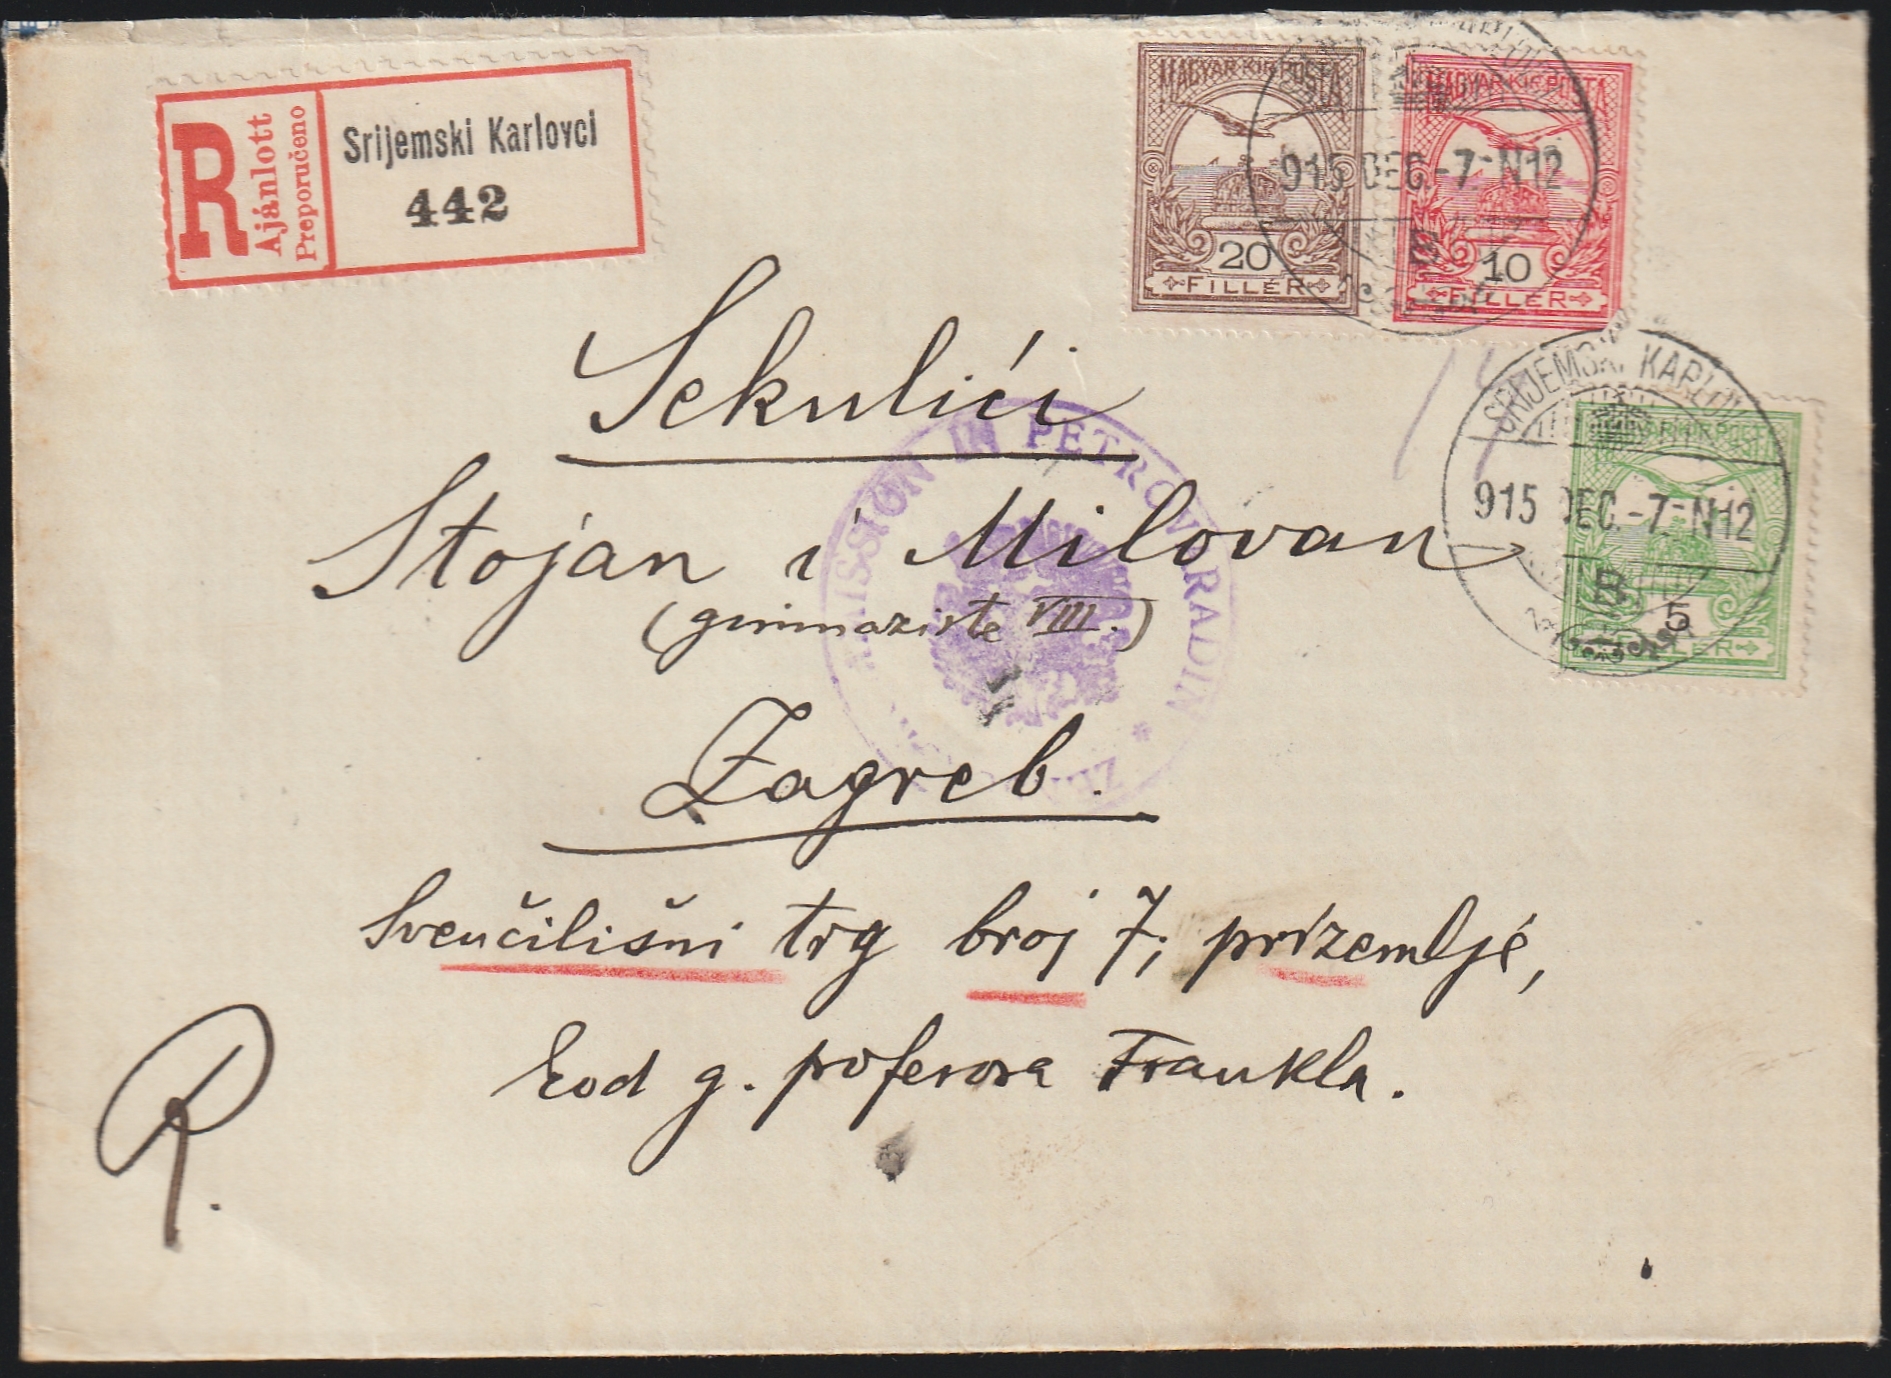 R Ajánlott
Preporučeno
Srijemski Karlovci
442
MAGYAR·KIR·POSTA
20
FILLÉR
MAGYAR·KIR·POSTA
10
FILLÉR
915 DEC.-7-N12
B
SRIJEMSKI KARLOV
915 DEC.-7-N12
B
5
FILLÉR
MISSION IN PETROVARADIN *
Sekulići
Stojan i Milovan
(gimnaziste VIII.)
Zagreb.
Sveučilišni trg broj 7, prízemljé,
kod g. profesora Frankla.
R.